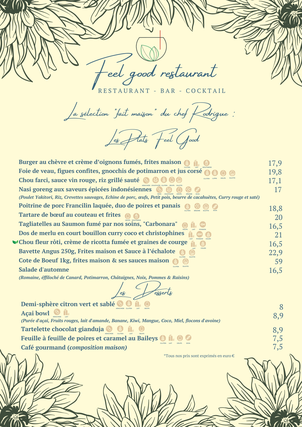 Feel good restaurant
RESTAURANT - BAR - COCKTAIL
La sélection "fait maison" du chef Rodrigue :
Les Plats Feel Good
Burger au chèvre et crème d'oignons fumés, frites maison 17,9
Foie de veau, figues confites, gnocchis de potimarron et jus corsé 19,8
Chou farci, sauce vin rouge, riz grillé sauté 17,1
Nasi goreng aux saveurs épicées indonésiennes 17
(Poulet Yakitori, Riz, Crevettes sauvages, Echine de porc, œufs, Petit pois, beurre de cacahuètes, Curry rouge et saté)
Poitrine de porc Francilin laquée, duo de poires et panais 18,8
Tartare de bœuf au couteau et frites 20
Tagliatelles au Saumon fumé par nos soins, "Carbonara" 16,5
Dos de merlu en court bouillon curry coco et christophines 21
Chou fleur rôti, crème de ricotta fumée et graines de courge 16,5
Bavette Angus 250g, Frites maison et Sauce à l'échalote 22,9
Cote de Boeuf 1kg, frites maison & ses sauces maison 59
Salade d'automne 16,5
(Romaine, Effiloché de Canard, Potimarron, Châtaignes, Noix, Pommes & Raisins)
Les Desserts
Demi-sphère citron vert et sablé 8
Açaï bowl 8,9
(Purée d'açaï, Fruits rouges, lait d'amande, Banane, Kiwi, Mangue, Coco, Miel, flocons d'avoine)
Tartelette chocolat gianduja 8,9
Feuille à feuille de poires et caramel au Baileys 7,5
Café gourmand (composition maison) 7,5
*Tous nos prix sont exprimés en euro €